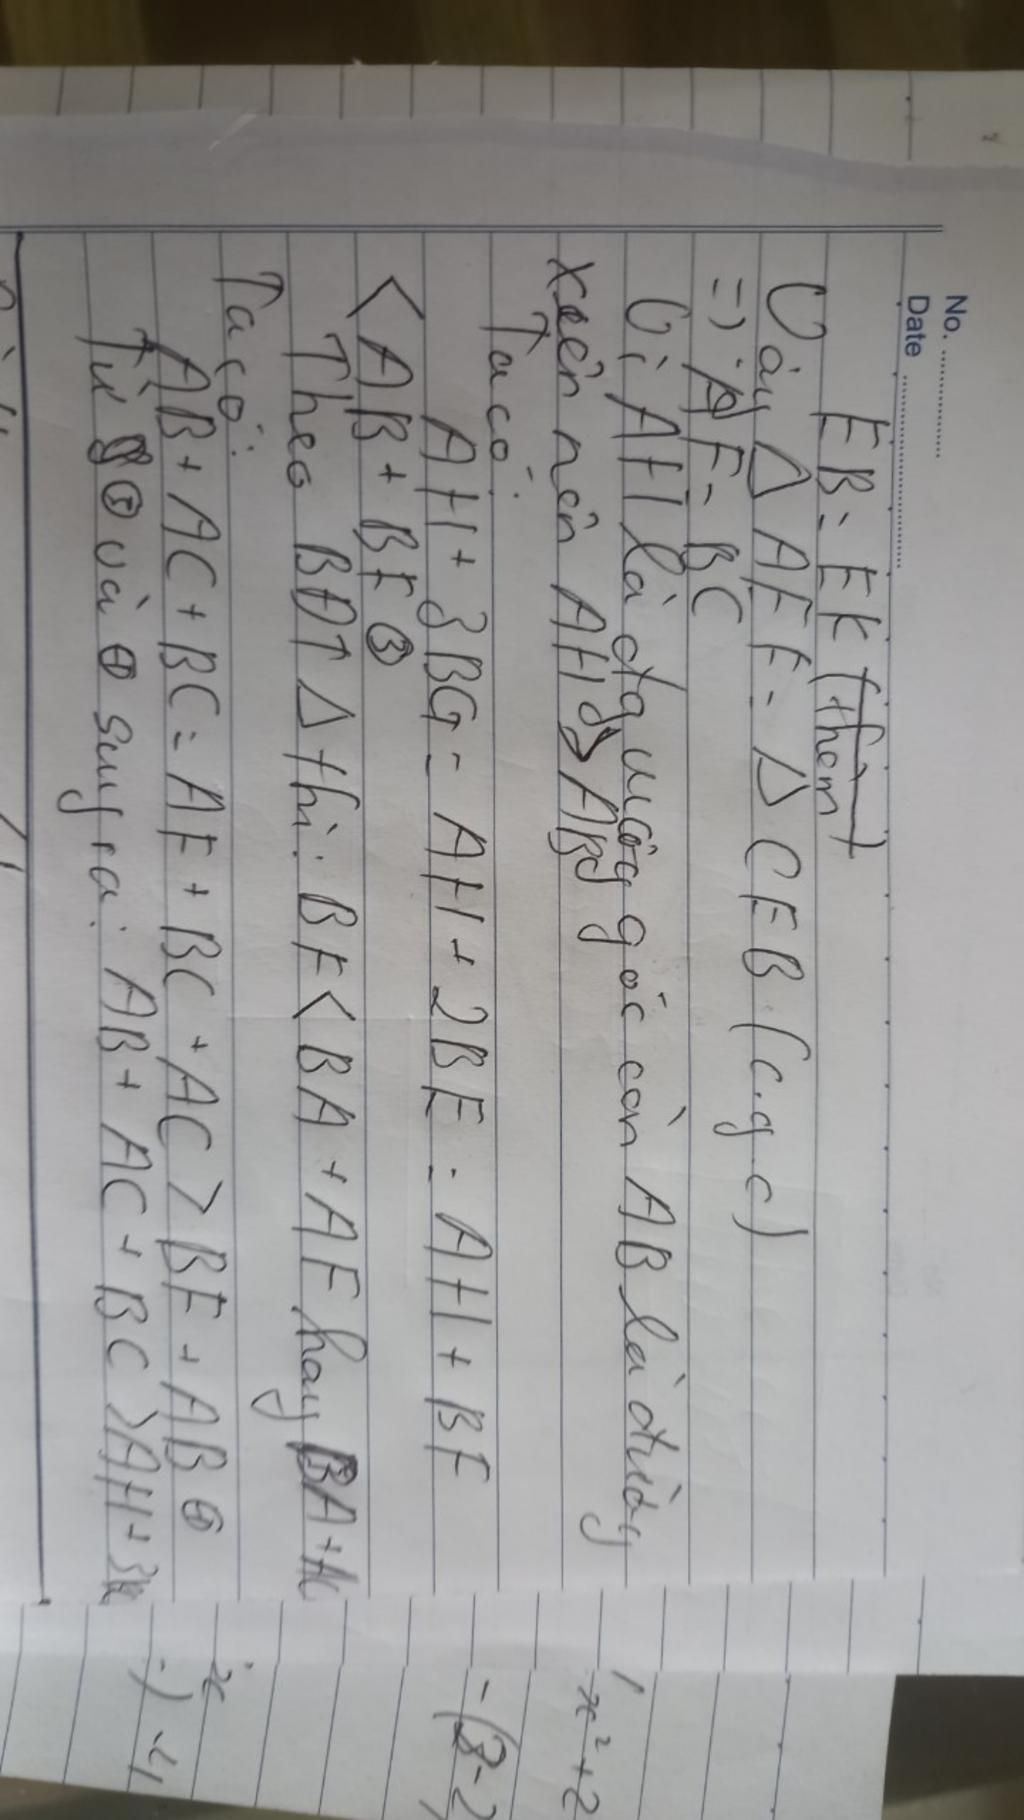 No.
Date
EB = EK (thêm)
Vậy Δ AEF = Δ CEB (c.g.c)
=) AF = BC
Vì AH là đg vuông góc còn AB là đường
xiên nên AH < AB
Ta có:
AH + 3BG = AH + 2BE = AH + BF
< AB + BF ③
Theo BĐT Δ thì: BF < BA + AF hay BA +
Ta có:
AB + AC + BC = AF + BC + AC > BF + AB ④
Từ ③ và ④ suy ra: AB + AC + BC > AH + 3
x² + 2
-(3-2